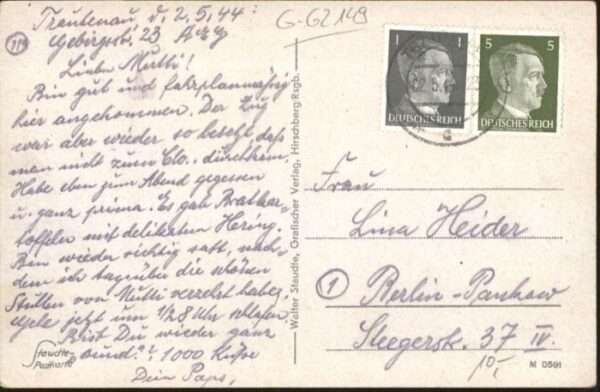 Trautenau, d. 2.5.44:
Gebirgsstr. 23
G-G2149
119
Liebe Mutti!
Bin gut und fahrplanmäßig
hier angekommen. Der Zug
war aber wieder so besetzt daß
man nicht zum Clo. durchkam.
Habe eben zum Abend gegessen
u. ganz prima. Es gab Bratkar-
toffeln mit delikaten Hering.
Bin wieder richtig satt, nach-
dem ich tagsüber die schönen
Stullen von Mutti verzehrt habe.
jetzt um 1/2 8 Uhr schlafen
Bist Du wieder ganz
gesund? 1000 Küsse
Dein Paps,
Staudte-
Postkarte
Walter Staudte, Grafischer Verlag, Hirschberg/Rsgb.
1
DEUTSCHES REICH
5
5
DEUTSCHES REICH
Frau
Lina Heider
1
Berlin-Pankow
Steegerstr. 37 IV.
10,-
M 0591